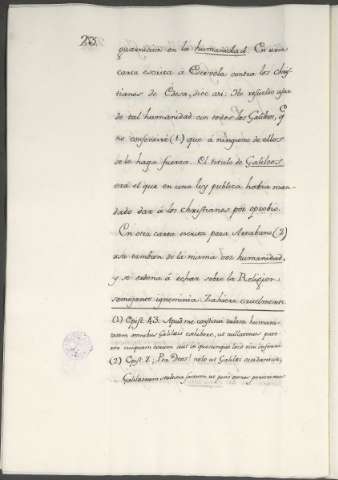 253.
guarnición en la humanidad. En una
carta escrita a Ecébola contra los chris-
tianos de Edesa, dice asi: He resuelto usar
de tal humanidad con todos los Galileos, q
no consentiré (1) que á ninguno de ellos
se le haga fuerza. El titulo de Galileos
era el que en una ley publica habia man-
dado dar á los christianos por oprobio.
En otra carta escrita para Artabano (2)
usa tambien de la misma voz humanidad,
y se ordena á echar sobre la Religion
semejante ignominia. Zahiere cruelmente
(1) Epist. 43. Apud me constitui
omnibus Galilaeis ut nullatenus
(2) Epist. 7. Per Deos! nolo ut Galilei
Galilaeorum ut